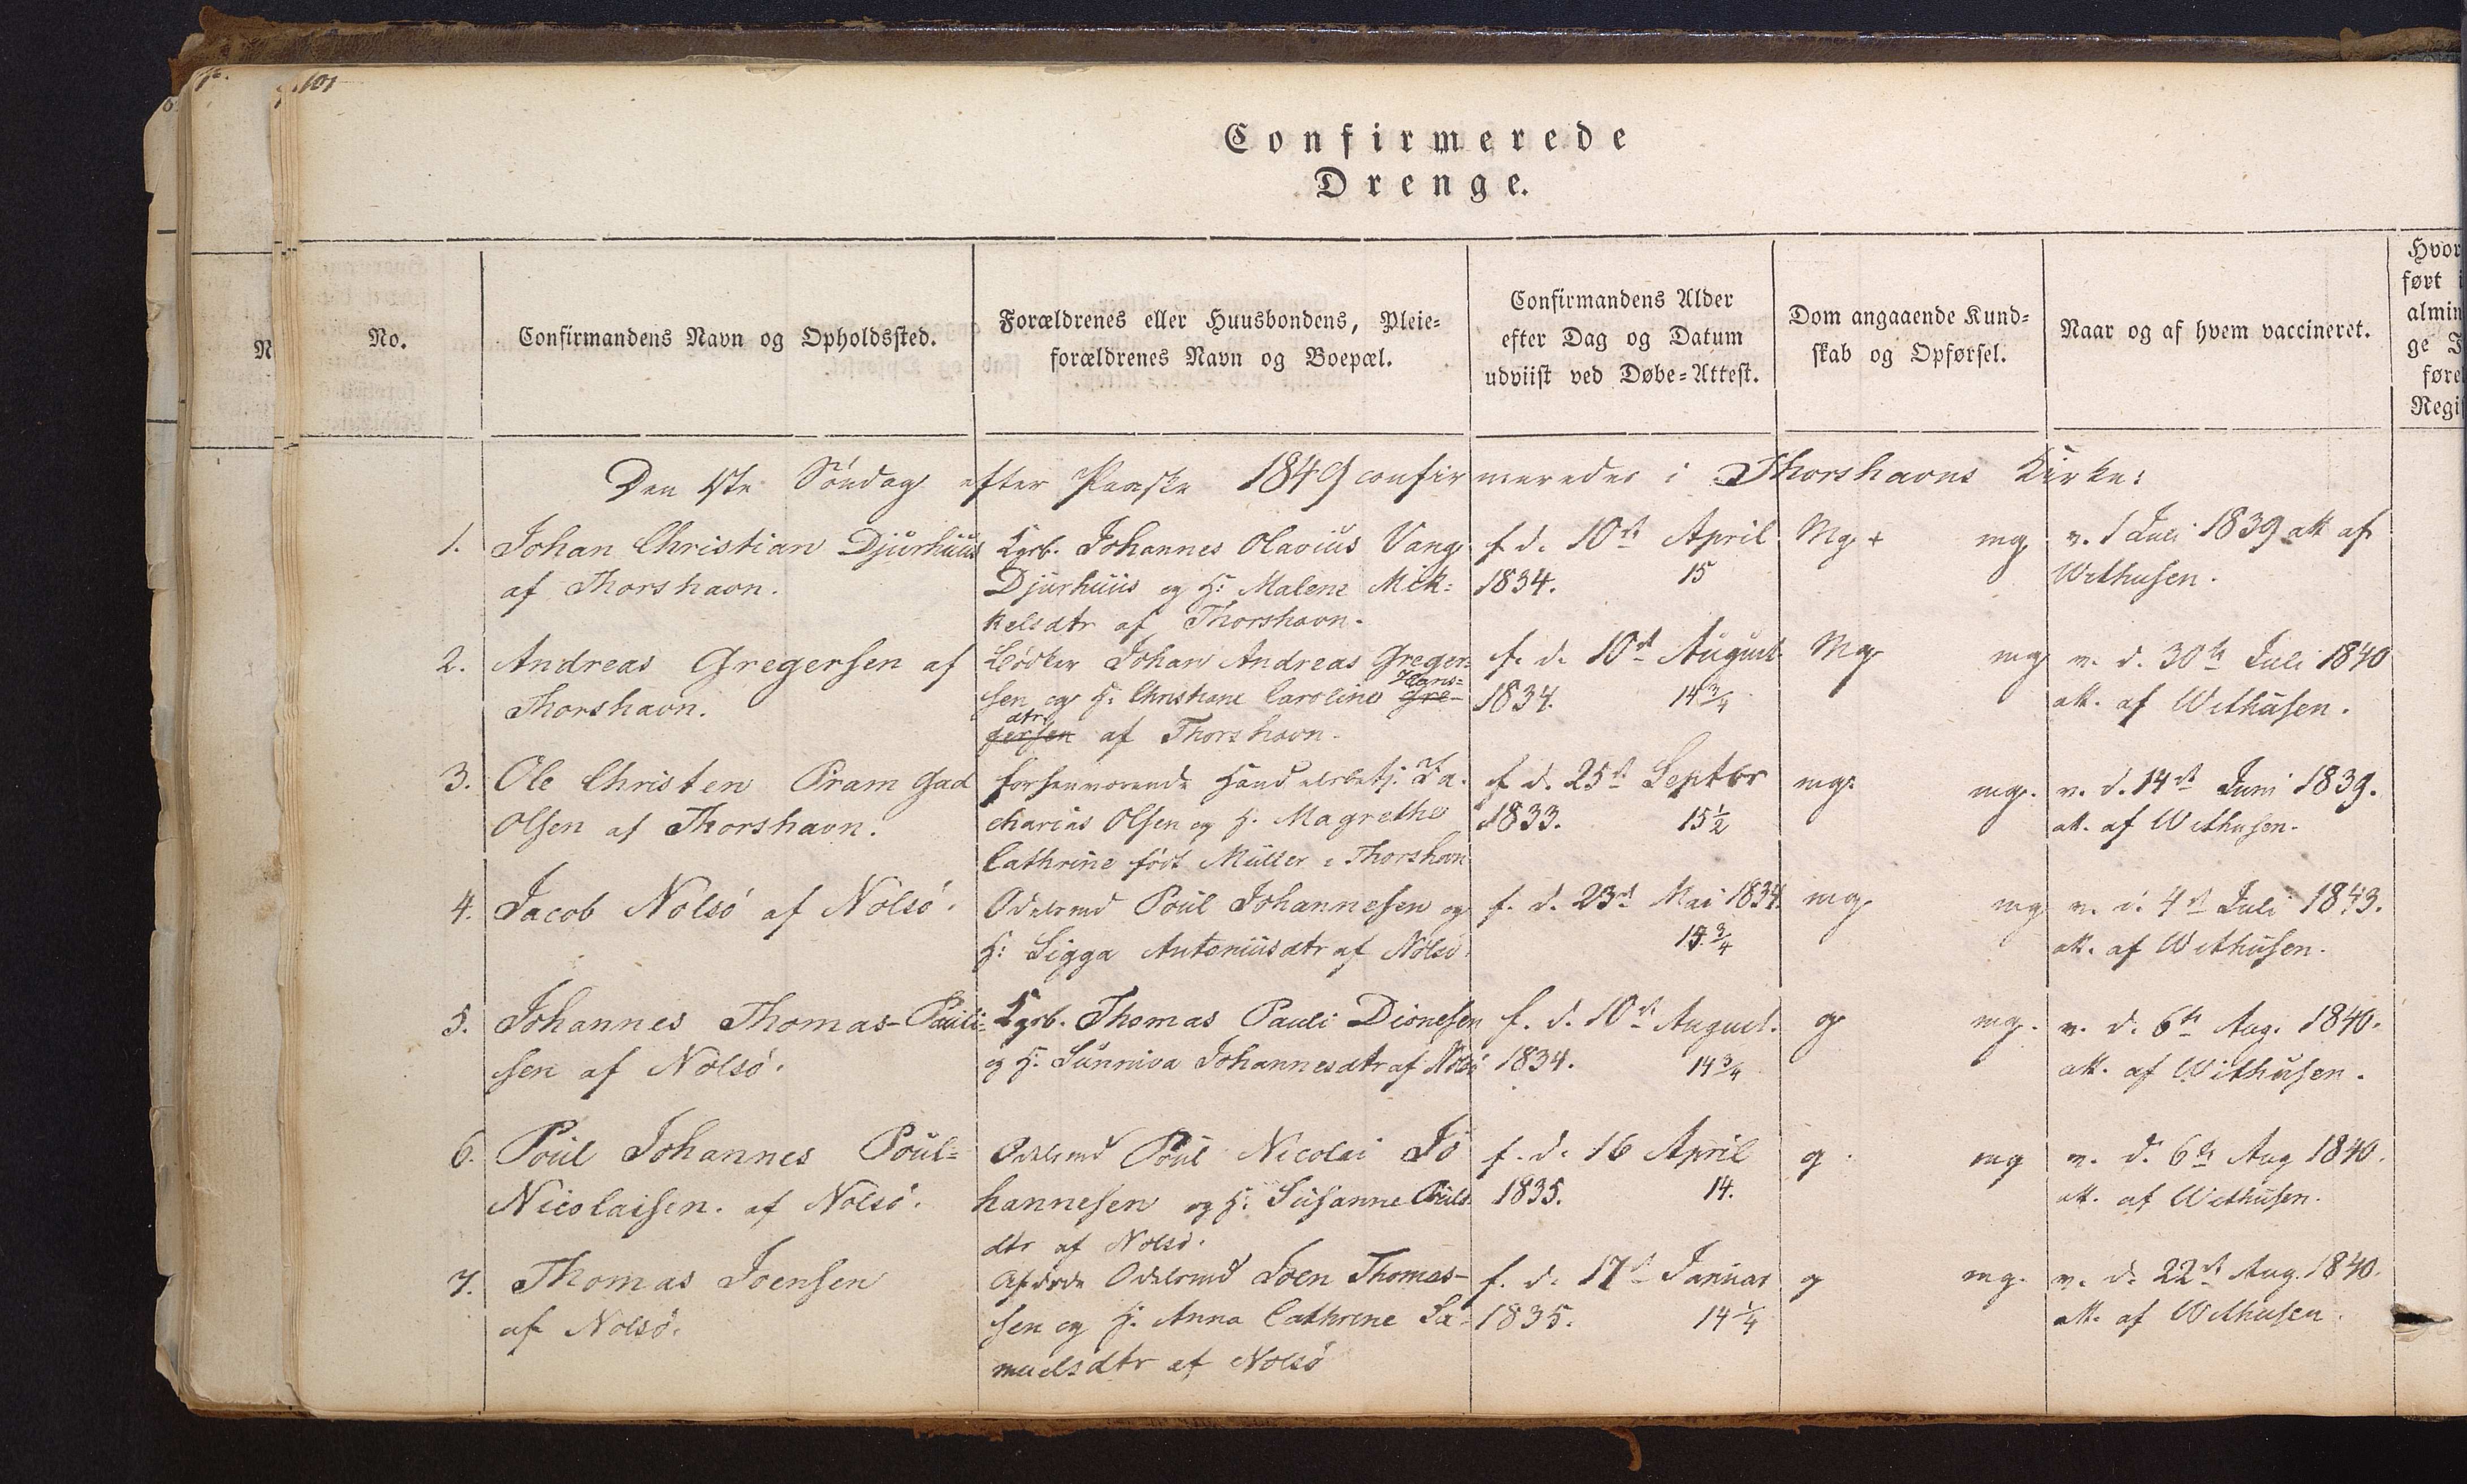 101
Confirmerede
Drenge.
No.
Confirmandens Navn og Opholdssted.
Forældrenes eller Huusbondens, Pleie=
forældrenes Navn og Boepæl.
Confirmandens Alder
efter Dag og Datum
udviist ved Døbe=Attest.
Dom angaaende Kund=
skab og Opførsel.
Naar og af hvem vaccineret.
Hvor
ført i
almin
ge J
føre
Regi
Den 1ste Söndag efter Paaske 1849 confirmeredes i Thorshavns Kirke:
1.
Johan Christian Djurhuus
af Thorshavn.
Kgsb. Johannes Olavius Vang
Djurhuus og H: Malene Mik=
kelsdtr af Thorshavn.
f. d. 10de April
1834. 15
Mg + mg
v. 1 Juli 1839 att af
Withusen.
2.
Andreas Gregersen af
Thorshavn.
Bödker Johan Andreas Greger=
sen og H: Christiane Caroline Gre- Hans=
gersen dtr af Thorshavn.
f. d. 10de August
1834. 14 3/4
Mg mg
v. d. 30te Juli 1840
att. af Withusen.
3.
Ole Christen Pram Gad
Olsen af Thorshavn.
forhenværende Handelsbetj. Za=
charias Olsen og H. Magrethe
Cathrine født Müller i Thorshavn
f. d. 25de Septbr
1833. 15 1/2
mg. mg.
v. d. 14de Juni 1839.
att. af Withusen.
4.
Jacob Nolsö af Nolsö.
Odelsmd Poul Johannesen og
H: Sigga Antoniusdtr af Nolsö.
f. d. 23de Mai 1834.
3/4
mg mg
v. d. 4de Juli 1843.
att. af Withusen.
5.
Johannes Thomas-Pauli=
sen af Nolsö.
Kgsb. Thomas Pauli Dionesen
og H: Sunniva Johannesdtr af Nolsö
f. d. 10de August.
1834. 14 3/4
g mg.
v. d. 6te Aug. 1840.
att. af Withusen.
6.
Poul Johannes Poul=
Nicolaisen. af Nolsö.
Odelsmd Poul Nicolai Jo
hannesen og H: Susanne Pouls
dtr af Nolsö.
f. d. 16 April
1835. 14.
g. mg
v. d. 6te Aug 1840.
att. af Withusen.
7.
Thomas Joensen
af Nolsö.
Afdöde Odelsmd Joen Thomas-
sen og H. Anna Cathrine Sa=
muelsdtr af Nolsö
f. d. 17de Januar
1835. 14 1/4
g mg.
v. d. 22de Aug. 1840.
att. af Withusen.